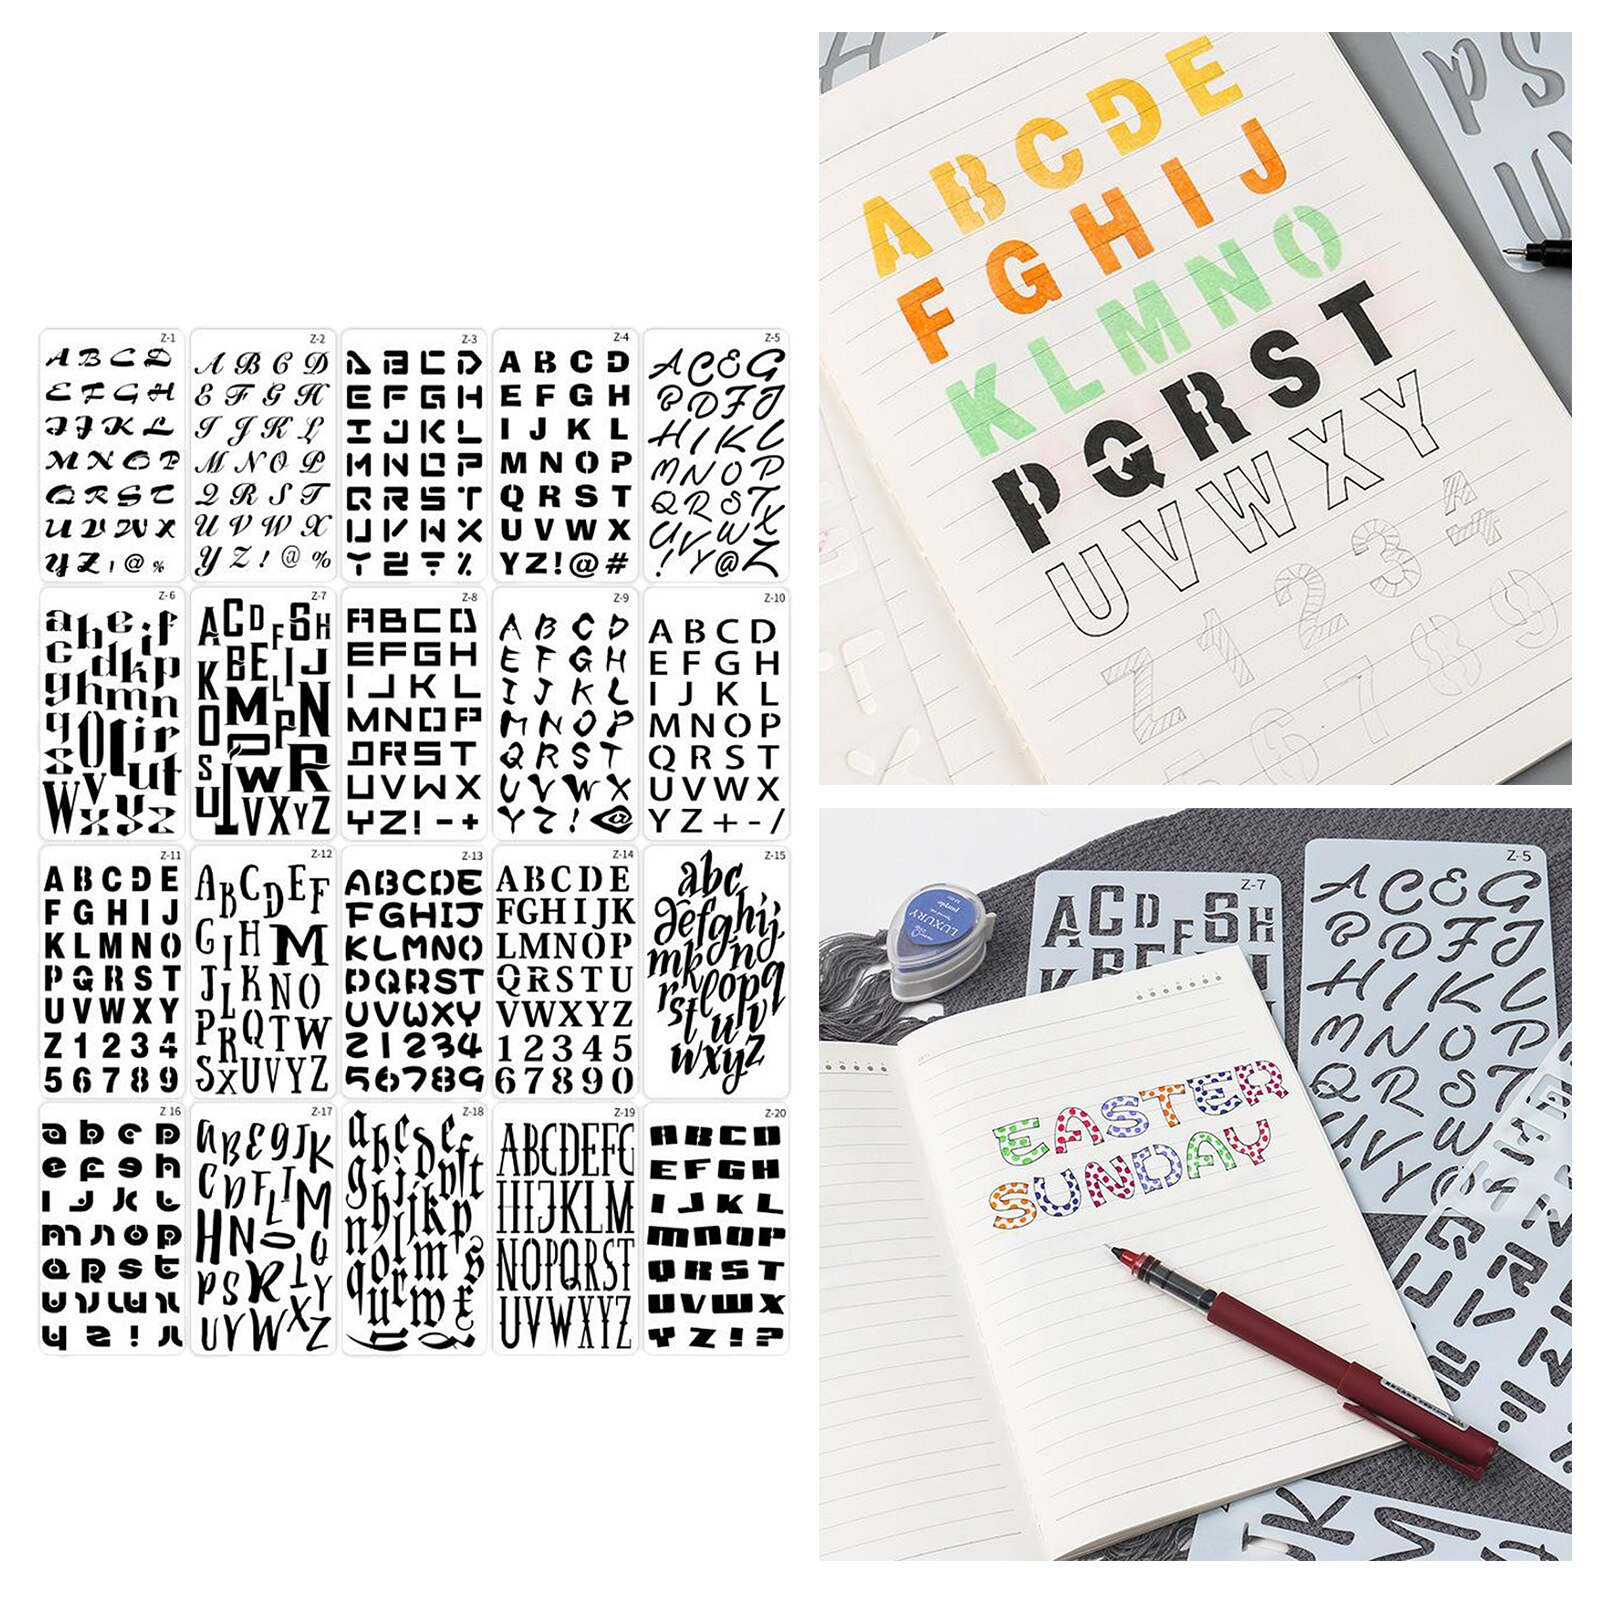 Z-1
A B C D
E F G H
I J K L
M N O P
Q R S T
U V W X
Y Z ! @ %
Z-2
A B C D
E F G H
I J K L
M N O P
Q R S T
U V W X
Y Z ! @ %
Z-3
A B C D
E F G H
I J K L
M N O P
Q R S T
U V W X
Y Z ? %
Z-4
A B C D
E F G H
I J K L
M N O P
Q R S T
U V W X
Y Z ! @ #
Z-5
A C E G
B D F J
H I K L
M N O P
Q R S T
U V W X
! Y @ Z
Z-6
Z-7
A C D F S H
K B E I J
Z-8
A B C D
E F G H
I J K L
M N O P
Q R S T
U V W X
Y Z ! - +
Z-9
A B C D
E F G H
I J K L
M N O P
Q R S T
U V W X
Y Z ! @
Z-10
A B C D
E F G H
I J K L
M N O P
Q R S T
U V W X
Y Z + - /
Z-11
A B C D E
F G H I J
K L M N O
P Q R S T
U V W X Y
Z 1 2 3 4
5 6 7 8 9
Z-12
A B C D E F
G I H M
J L K N O
P R Q T W
S X U V Y Z
Z-13
A B C D E
F G H I J
K L M N O
P Q R S T
U V W X Y
Z 1 2 3 4
5 6 7 8 9
Z-14
A B C D E
F G H I J K
L M N O P
Q R S T U
V W X Y Z
1 2 3 4 5
6 7 8 9 0
Z-15
abc
defghij
wxyz
Z 16
a b c d
e f g h
i j k l
m n o p
q r s t
u v w x
y z ! 
Z-17
Z-18
Z-19
ABCDEFG
HIJKLM
NOPQRST
UVWXYZ
Z-20
A B C D
E F G H
I J K L
M N O P
Q R S T
U V W X
Y Z ! ?
A B C D E
F G H I J
K L M N O
P Q R S T
U V W X Y
Z 1 2 3 4
5 6 7 8 9
P S
LUXURY
purple
Z-7
A C D F S H
Z-5
A C E G
B D F J
H I K L
M N O P
Q R S T
U V W
EASTER
SUNDAY